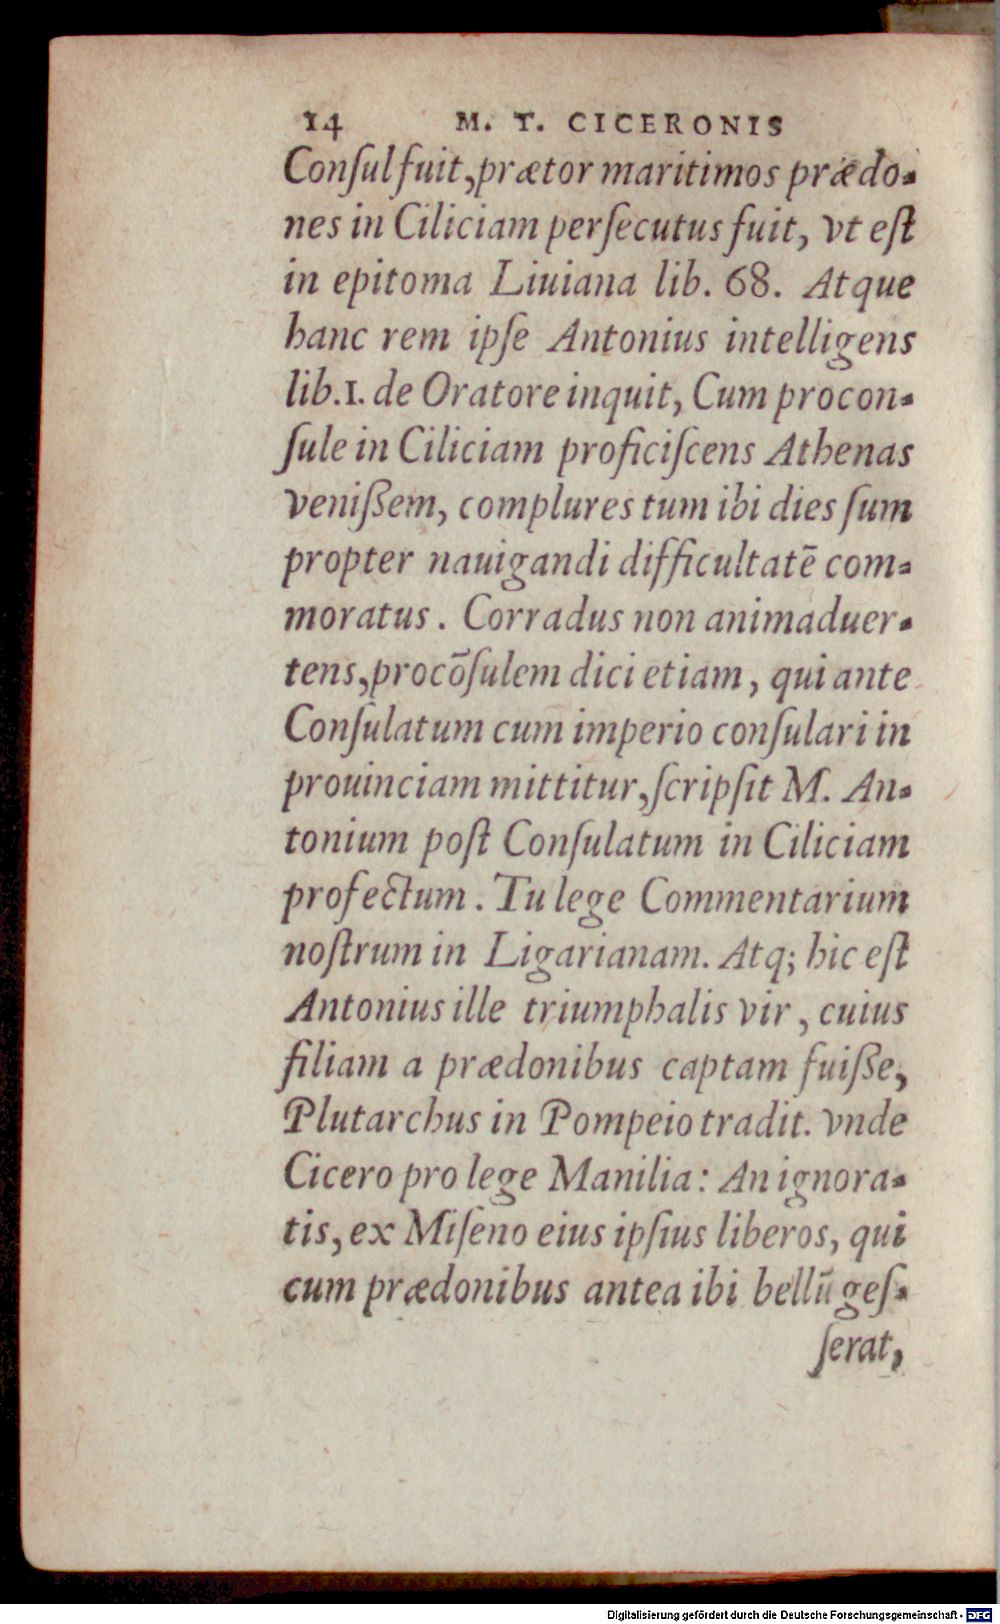 14 M. T. CICERONIS
Conſul fuit, prætor maritimos prædo-
nes in Ciliciam perſecutus fuit, vt eſt
in epitoma Liuiana lib. 68. Atque
hanc rem ipſe Antonius intelligens
lib. 1. de Oratore inquit, Cum procon-
ſule in Ciliciam proficiſcens Athenas
veniſſem, complures tum ibi dies ſum
propter nauigandi difficultatē com-
moratus. Corradus non animaduer-
tens, procōſulem dici etiam, qui ante
Conſulatum cum imperio conſulari in
prouinciam mittitur, ſcripſit M. An-
tonium poſt Conſulatum in Ciliciam
profectum. Tu lege Commentarium
noſtrum in Ligarianam. Atq; hic eſt
Antonius ille triumphalis vir, cuius
filiam a prædonibus captam fuiſſe,
Plutarchus in Pompeio tradit. vnde
Cicero pro lege Manilia: An ignora-
tis, ex Miſeno eius ipſius liberos, qui
cum prædonibus antea ibi bellū geſ-
ſerat,
Digitalisierung gefördert durch die Deutsche Forschungsgemeinschaft - DFG